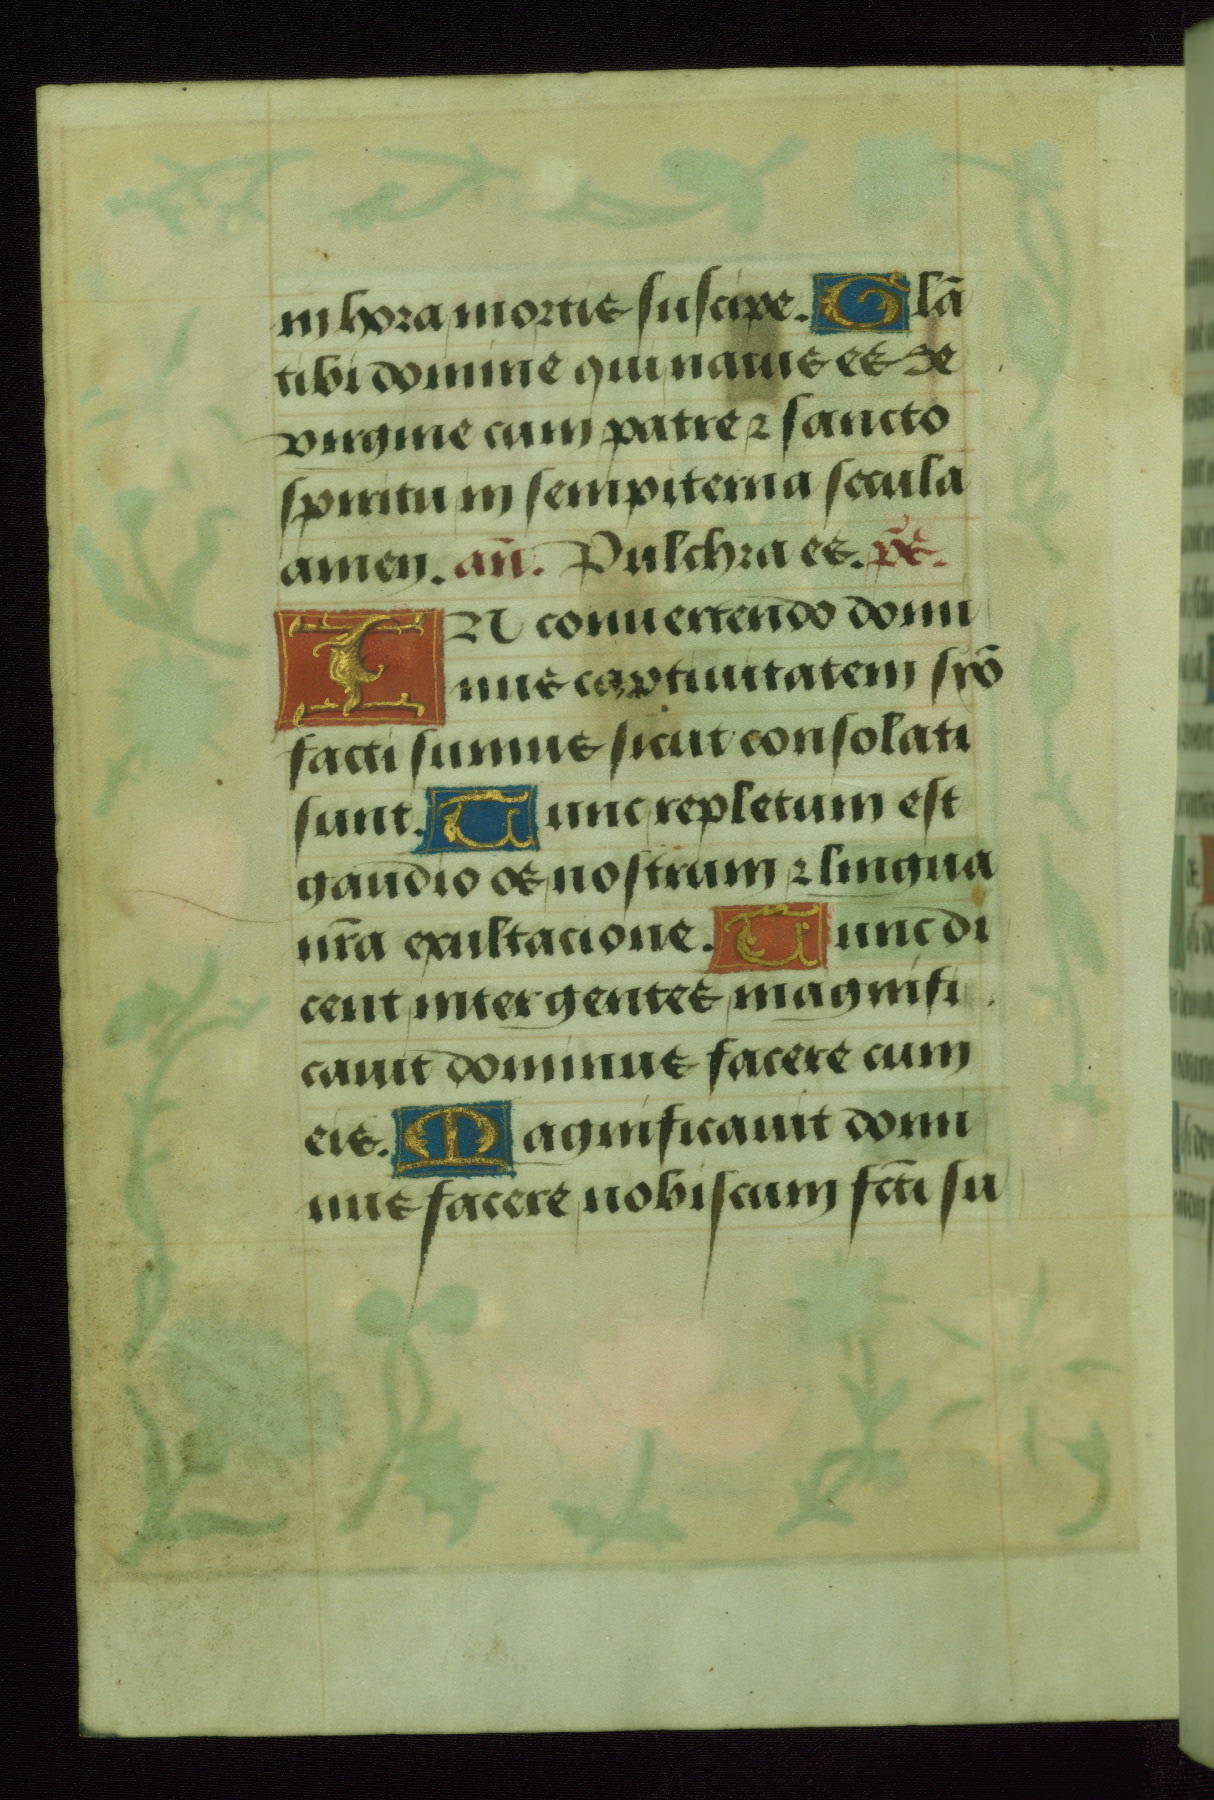 in hora mortis suscipe. Glã
tibi domine qui natus es de
virgine cum patre ⁊ sancto
spiritu in sempiterna secula
amen. añ. Pulchra es. ps̃.
IN conuertendo domi
nus captiuitatem syõ
facti sumus sicut consolati
sunt. Tunc repletum est
gaudio os nostrum ⁊ lingua
nr̃a exultacione. Tunc di
cent inter gentes magnifi
cauit dominus facere cum
eis. Magnificauit domi
nus facere nobiscum fct̃i su